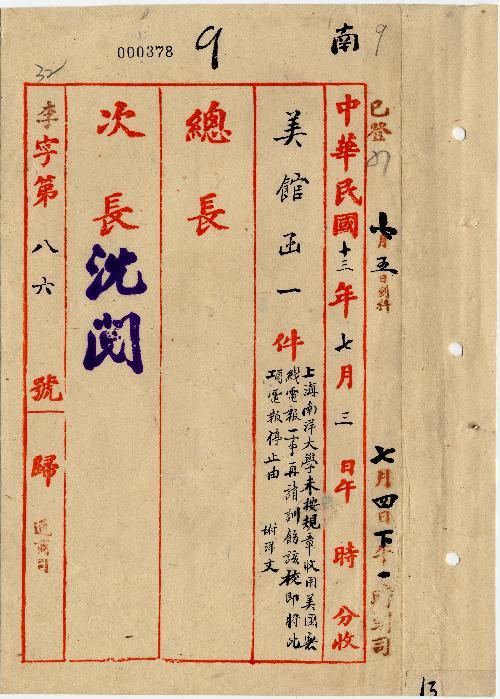 000378
9
南
9
32
已登
七月五日到科
七月四日下午一時到司
中華民國十三年七月三日午時分收
美館函一件
上海南洋大學未按規章收用美國無
綫電報一事再請訓飭該校即將此
項電報停止由
附洋文
總長
次長
沈閱
李字第八六號
歸
通商司
13